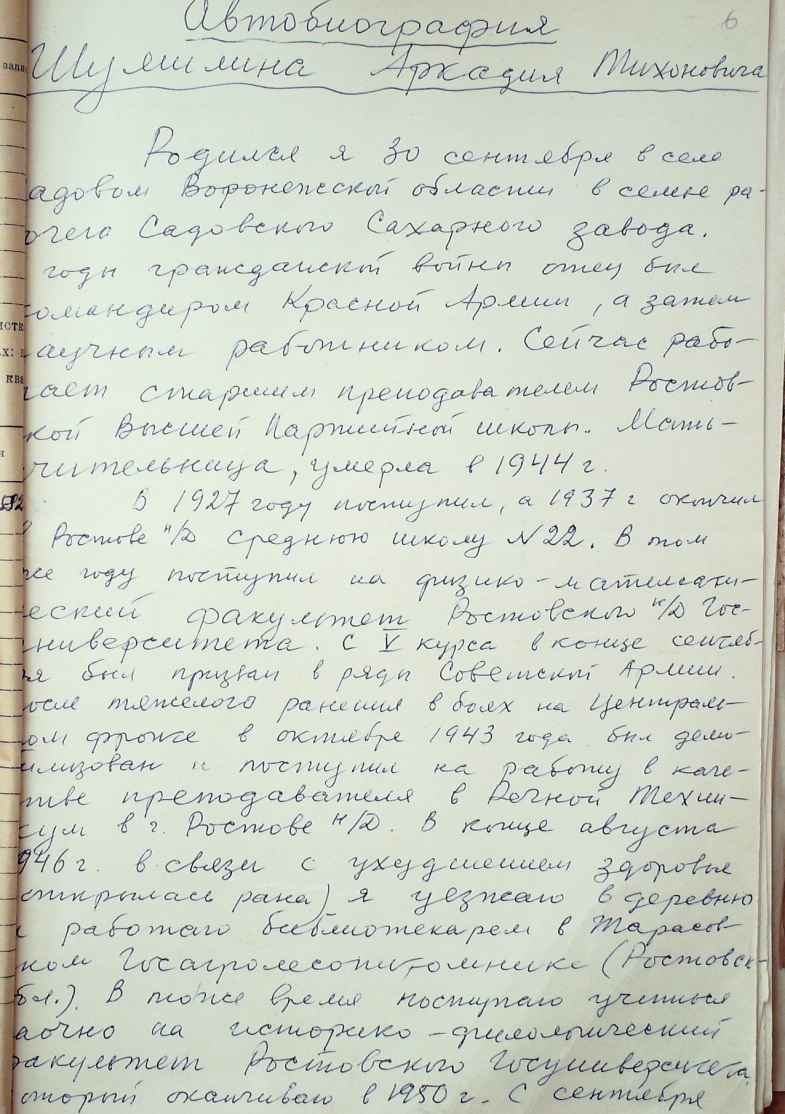 6
Автобиография
Шумилина Аркадия Тихоновича
Родился я 30 сентября в селе
адовом Воронежской области в семье ра-
очего Садовского Сахарного завода.
годы гражданской войны отец был
омандиром Красной Армии, а затем
аучным работником. Сейчас рабо-
тает старшим преподавателем Ростов-
кой Высшей Партийной школы. Мать-
чительница, умерла в 1944 г.
В 1927 году поступил, а 1937 г окончил
Ростове н/Д среднюю школу N 22. В том
же году поступил на физико-математи-
еский факультет Ростовского н/Д Гос-
ниверситета. С V курса в конце сентяб-
я был призван в ряды Советской Армии.
осле тяжелого ранения в боях на Централь-
ом фронте в октябре 1943 года был демо-
илизован и поступил на работу в каче-
тве преподавателя в Речной Техни-
кум в г. Ростове н/Д. В конце августа
946 г. в связи с ухудшением здоровья
открылась рана) я уезжаю в деревню
и работаю библиотекарем в Тарасов-
ком Госагролесопитомнике (Ростовск-
бл.). В тоже время поступаю учиться
аочно на историко-филологический
факультет Ростовского Госуниверситета,
оторый оканчиваю в 1950 г. С сентября